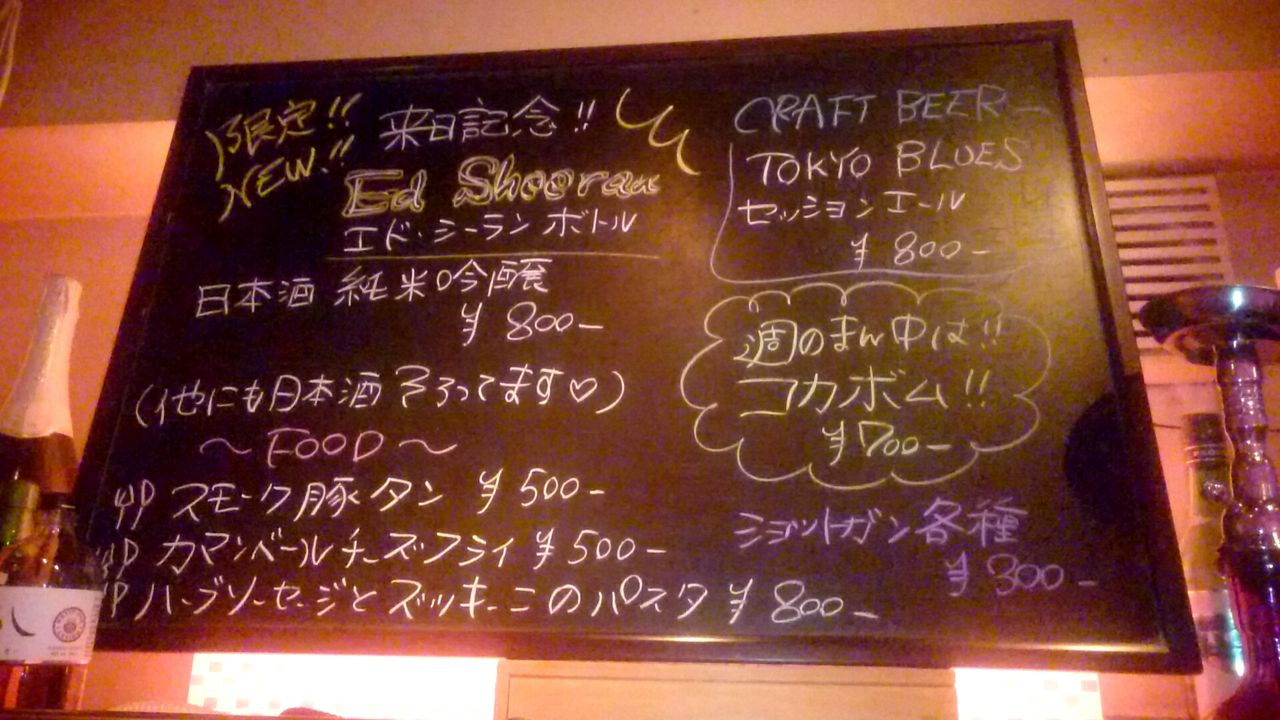 限定!!
NEW!!
来日記念!!
Ed Sheeran
エド・シーラン ボトル
日本酒 純米吟醸
¥800-
(他にも日本酒そろってます♡)
～FOOD～
スモーク豚タン ¥500-
カマンベールチーズフライ ¥500-
ハーブソーセージとズッキーニのパスタ ¥800-
CRAFT BEER
TOKYO BLUES
セッションエール
¥800-
週のまん中は!!
コカボム!!
¥700-
ショットガン各種
¥300-